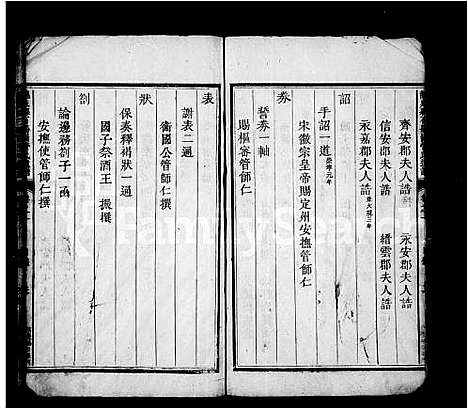 齊安郡夫人誥 永安郡夫人誥
信安郡夫人誥 縉雲郡夫人誥
永嘉郡夫人誥
詔
手詔一道 崇寧元年
宋徽宗皇帝賜定州安撫管師仁
券
誓券一軸
賜樞密管師仁
表
謝表二通
衞國公管師仁撰
狀
保奏釋褐狀一通
國子祭酒王 撰
劄
論邊務劄子一函
安撫使管師仁撰
FamilySearch